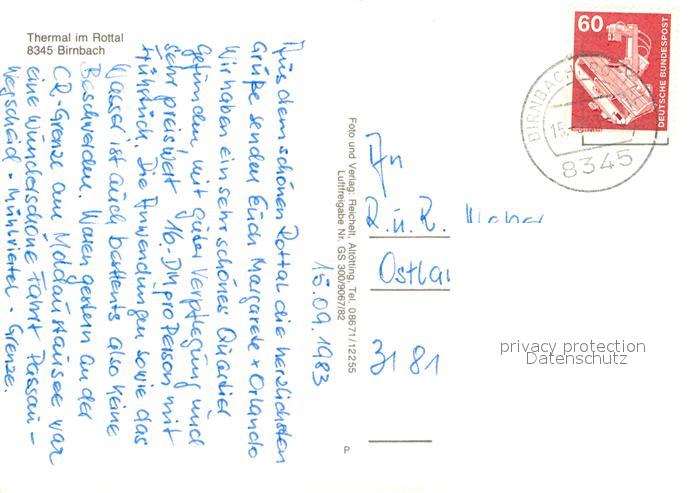 Thermal im Rottal
8345 Birnbach
15.09.1983
Aus dem schönen Rottal die herzlichsten
Grüße senden Euch Margarete + Orlando
Wir haben ein sehr schönes Quartier
gefunden mit guter Verpflegung und
sehr preiswert 16. DM pro Person mit
Frühstück. Die Anwendungen sowie das
Wasser ist auch bestens also keine
Beschwerden. Waren gestern an der
CR-Grenze am Moldaustausee war
eine wunderschöne Fahrt Passau -
Wegscheid - Mühlviertel - Grenze.
Foto und Verlag: Reichelt, Altötting, Tel. 08671/12255
Luftfreigabe Nr. GS 300/9067/82
P
60
DEUTSCHE BUNDESPOST
BIRNBACH
15.
8345
An
R. u. R.
3181
privacy protection
Datenschutz